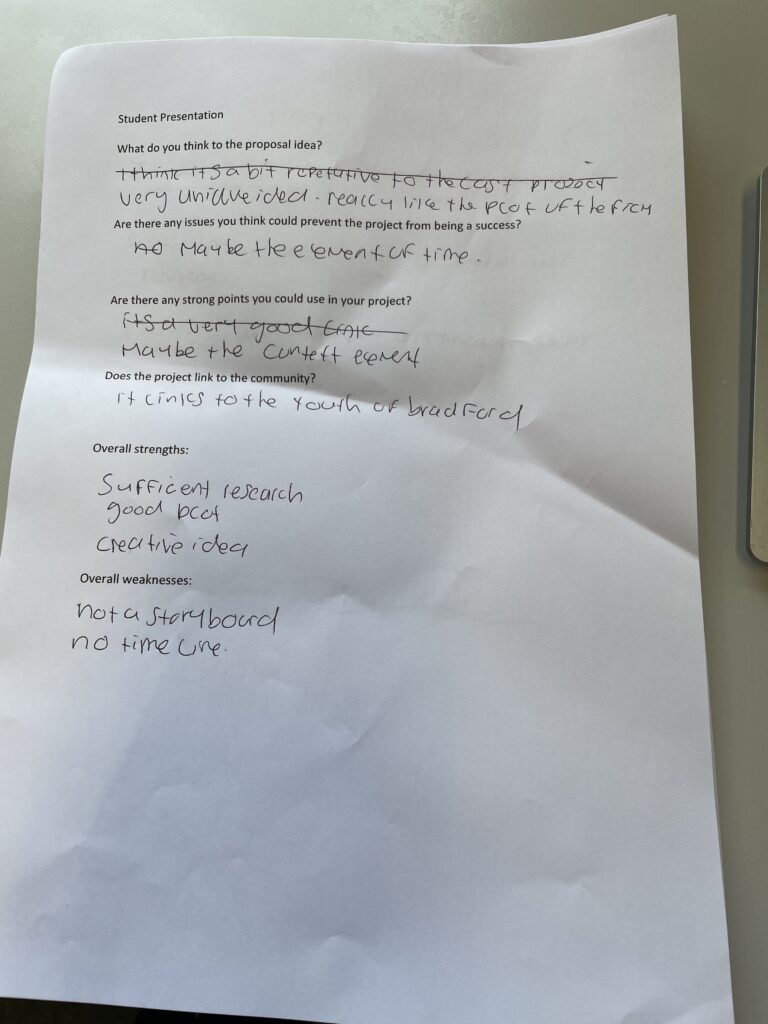 Student Presentation
What do you think to the proposal idea?
I think its a bit repetative to the last project
very unique idea. really like the plot of the film
Are there any issues you think could prevent the project from being a success?
no Maybe the element of time.
Are there any strong points you could use in your project?
its a very good
Maybe the element
Does the project link to the community?
it links to the Youth of bradford
Overall strengths:
Sufficent research
good plot
creative idea
Overall weaknesses:
not a storyboard
no time line.